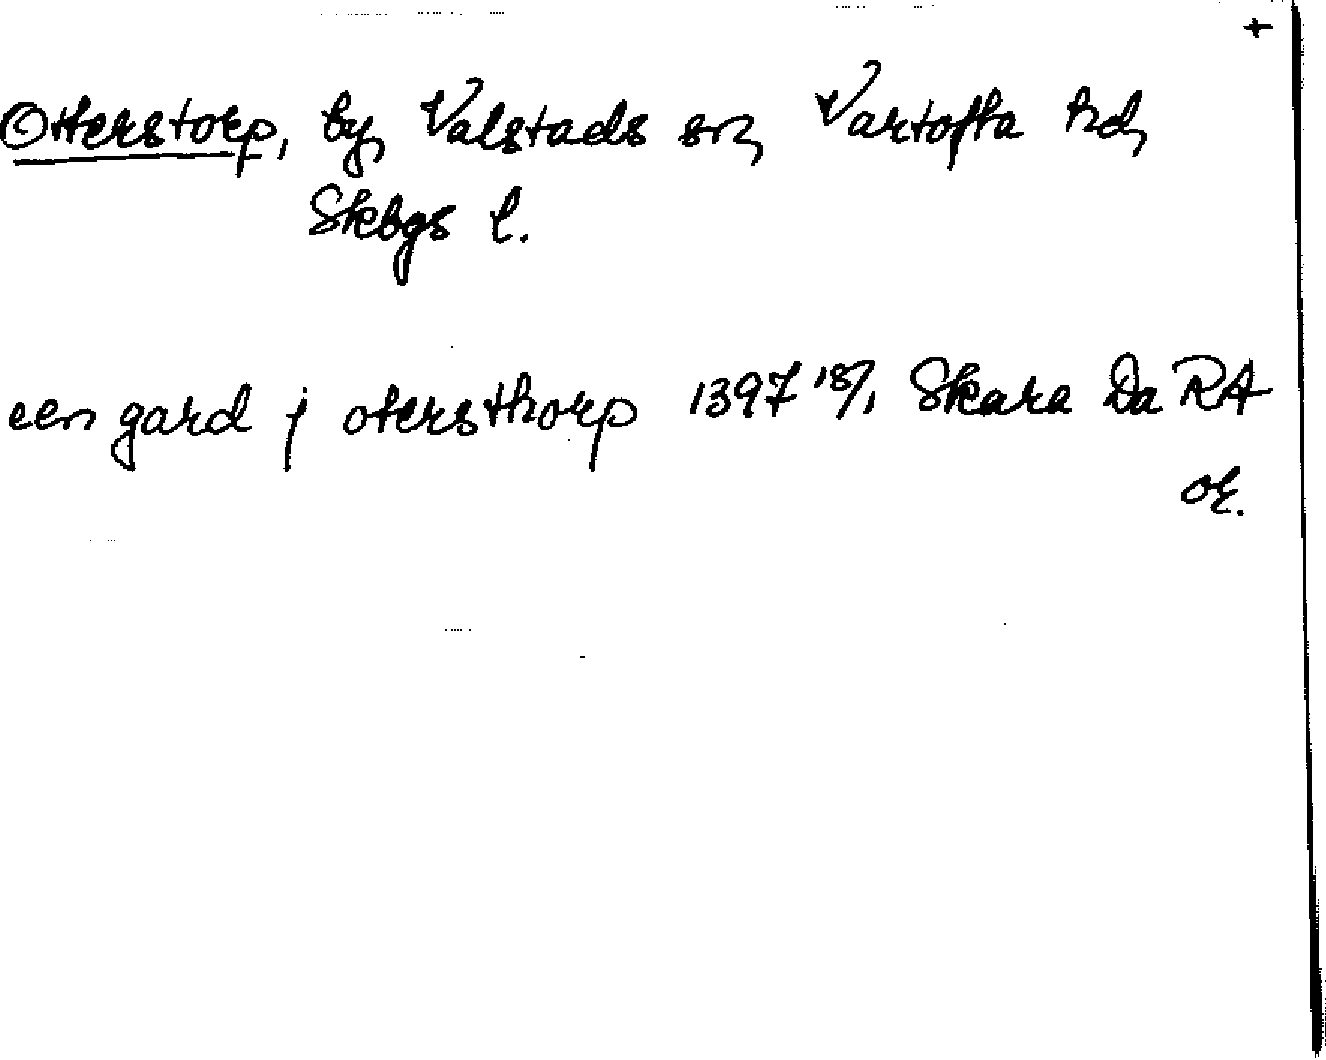 +
Otterstorp, by, Valstads sn, Vartofta hd,
Skbgs l.
een gard j otersthorp 1397 18/1 Skara Da RA
or.